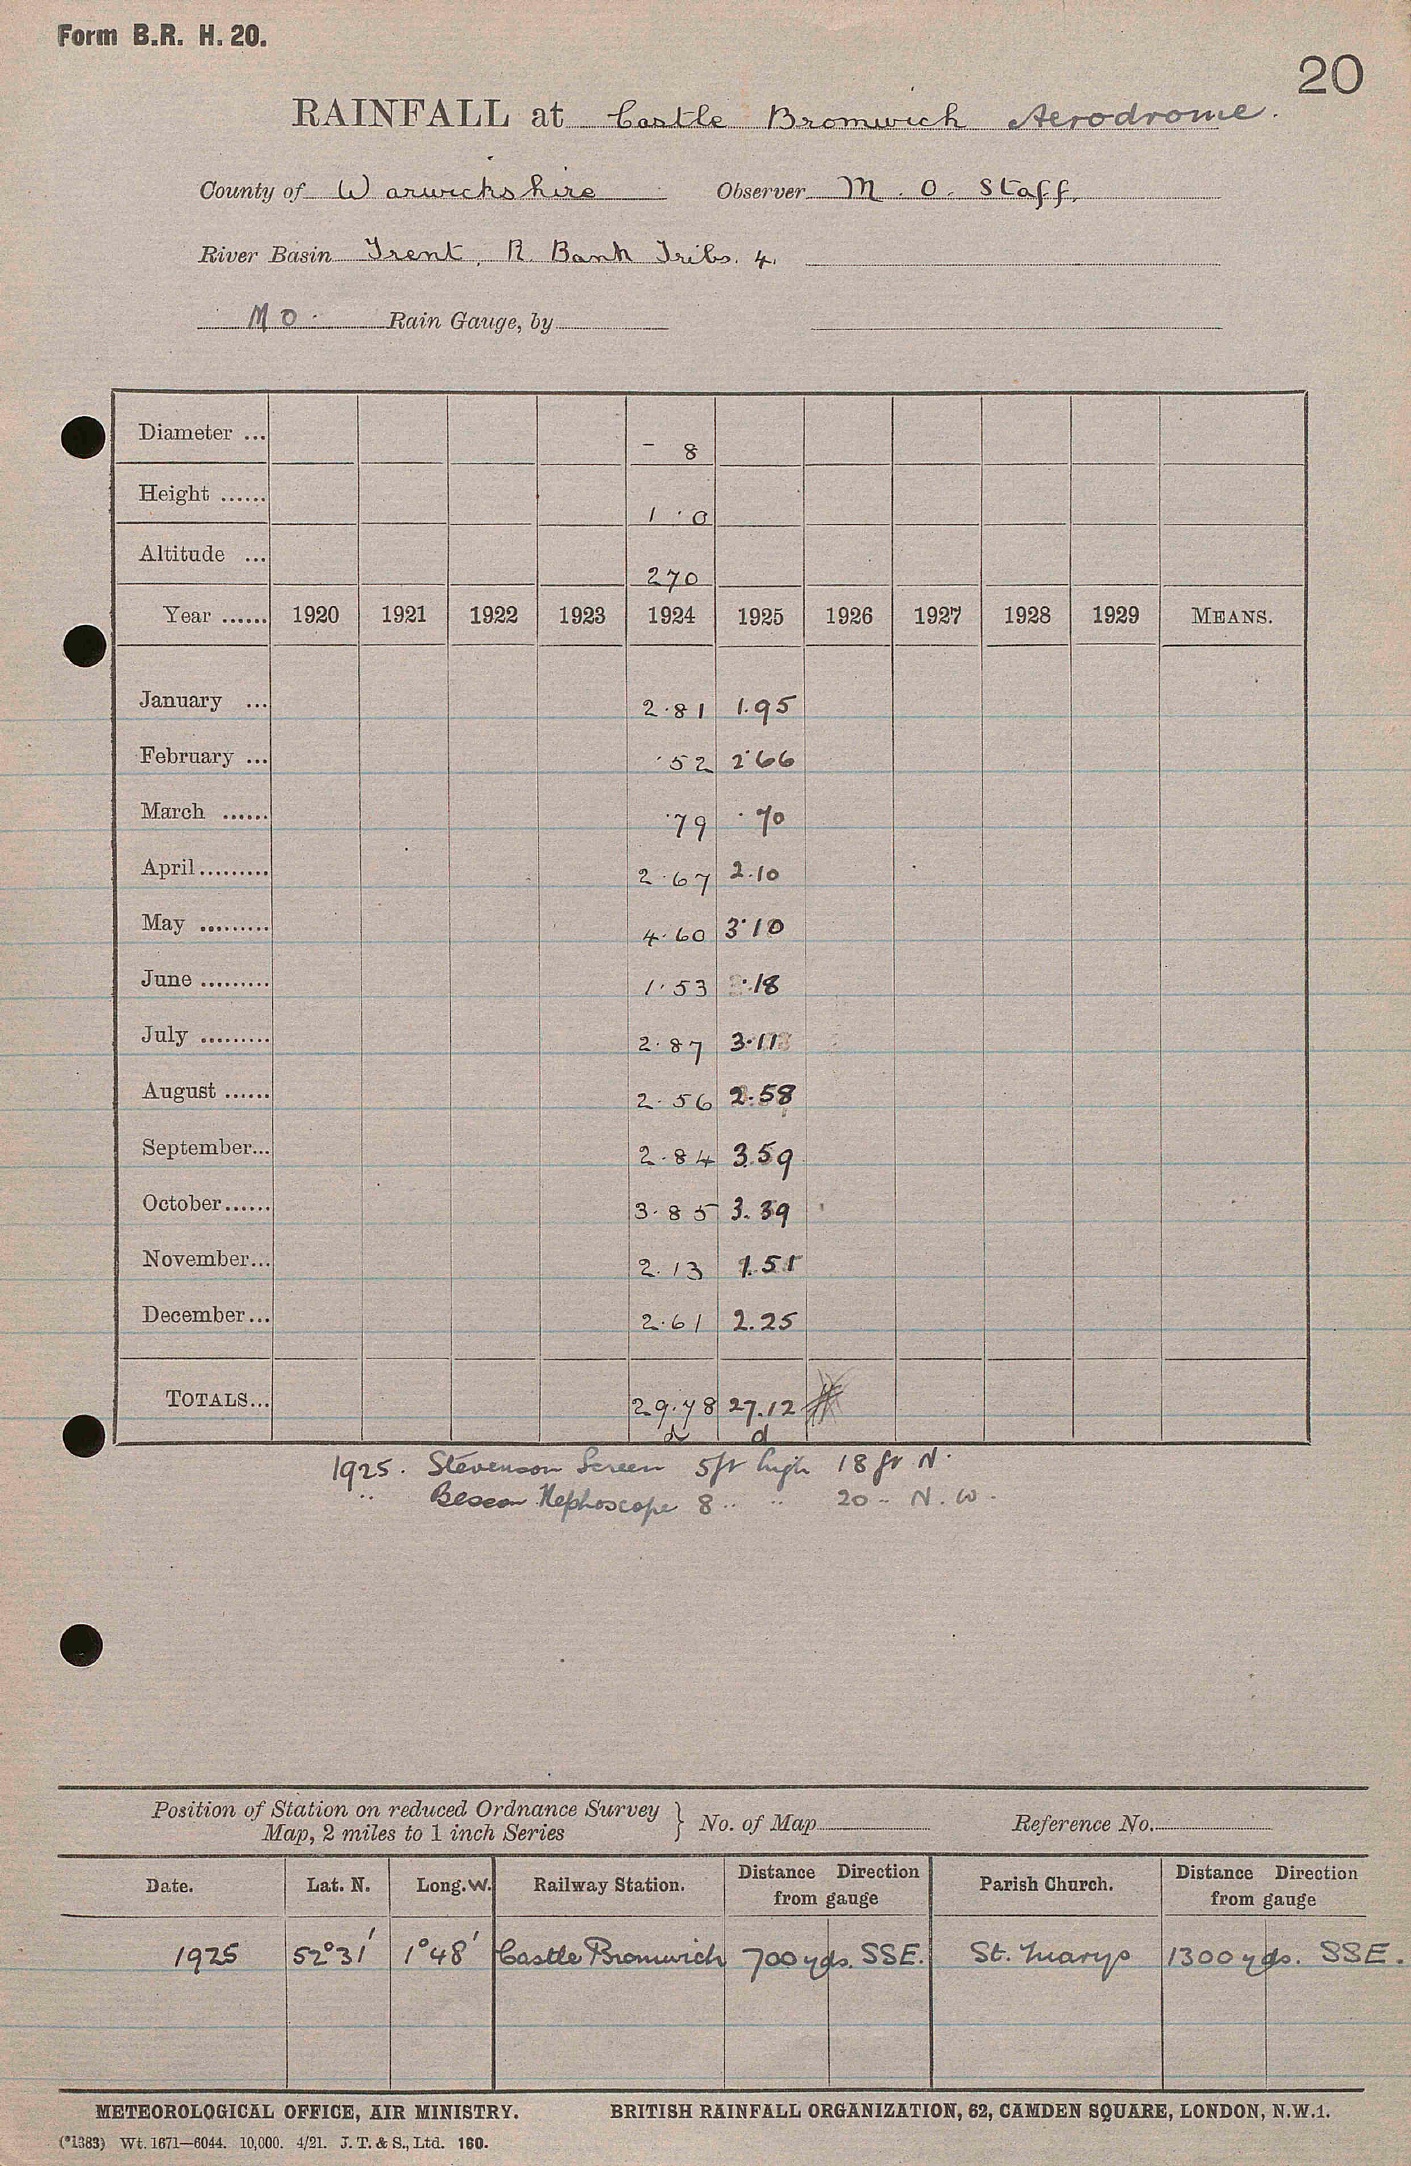 Form B.R. H. 20.
20
RAINFALL at Castle Bromwich Aerodrome.
County of Warwickshire Observer M. O. Staff.
River Basin Trent, R. Bank Tribs. 4.
M O. Rain Gauge, by
Diameter ... – 8
Height ...... 1 · 0
Altitude ... 270
Year ...... 1920 1921 1922 1923 1924 1925 1926 1927 1928 1929 MEANS.
January ... 2·81 1.95
February ... ·52 2·66
March ...... ·79 ·70
April ......... 2·67 2.10
May ......... 4·60 3·10
June ......... 1·53 ·18
July ......... 2·87 3·11
August ...... 2·56 2.58
September... 2·84 3.59
October...... 3·85 3.39
November... 2.13 1.51
December... 2·61 2.25
TOTALS... 29·78 27.12
d d
1925. Stevenson Screen 5ft high 18 ft N.
" Besson Nephoscope 8 " " 20 " N.W.
Position of Station on reduced Ordnance Survey
Map, 2 miles to 1 inch Series } No. of Map Reference No.
Date. Lat. N. Long. W. Railway Station. Distance Direction from gauge Parish Church. Distance Direction from gauge
1925 52°31' 1°48' Castle Bromwich 700 yds. SSE. St. Marys 1300 yds. SSE.
METEOROLOGICAL OFFICE, AIR MINISTRY. BRITISH RAINFALL ORGANIZATION, 62, CAMDEN SQUARE, LONDON, N.W.1.
(*1383) Wt. 1671—6044. 10,000. 4/21. J. T. & S., Ltd. 160.